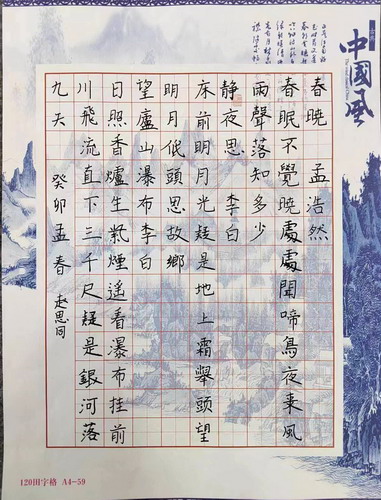 中國風
春曉 孟浩然
春眠不覺曉處處聞啼鳥夜來風
雨聲落知多少
静夜思 李白
床前明月光疑是地上霜舉頭望
明月低頭思故鄉
望廬山瀑布李白
日照香爐生紫煙遙看瀑布挂前
川飛流直下三千尺疑是銀河落
九天 癸卯孟春 赵思同
120田字格 A4-59